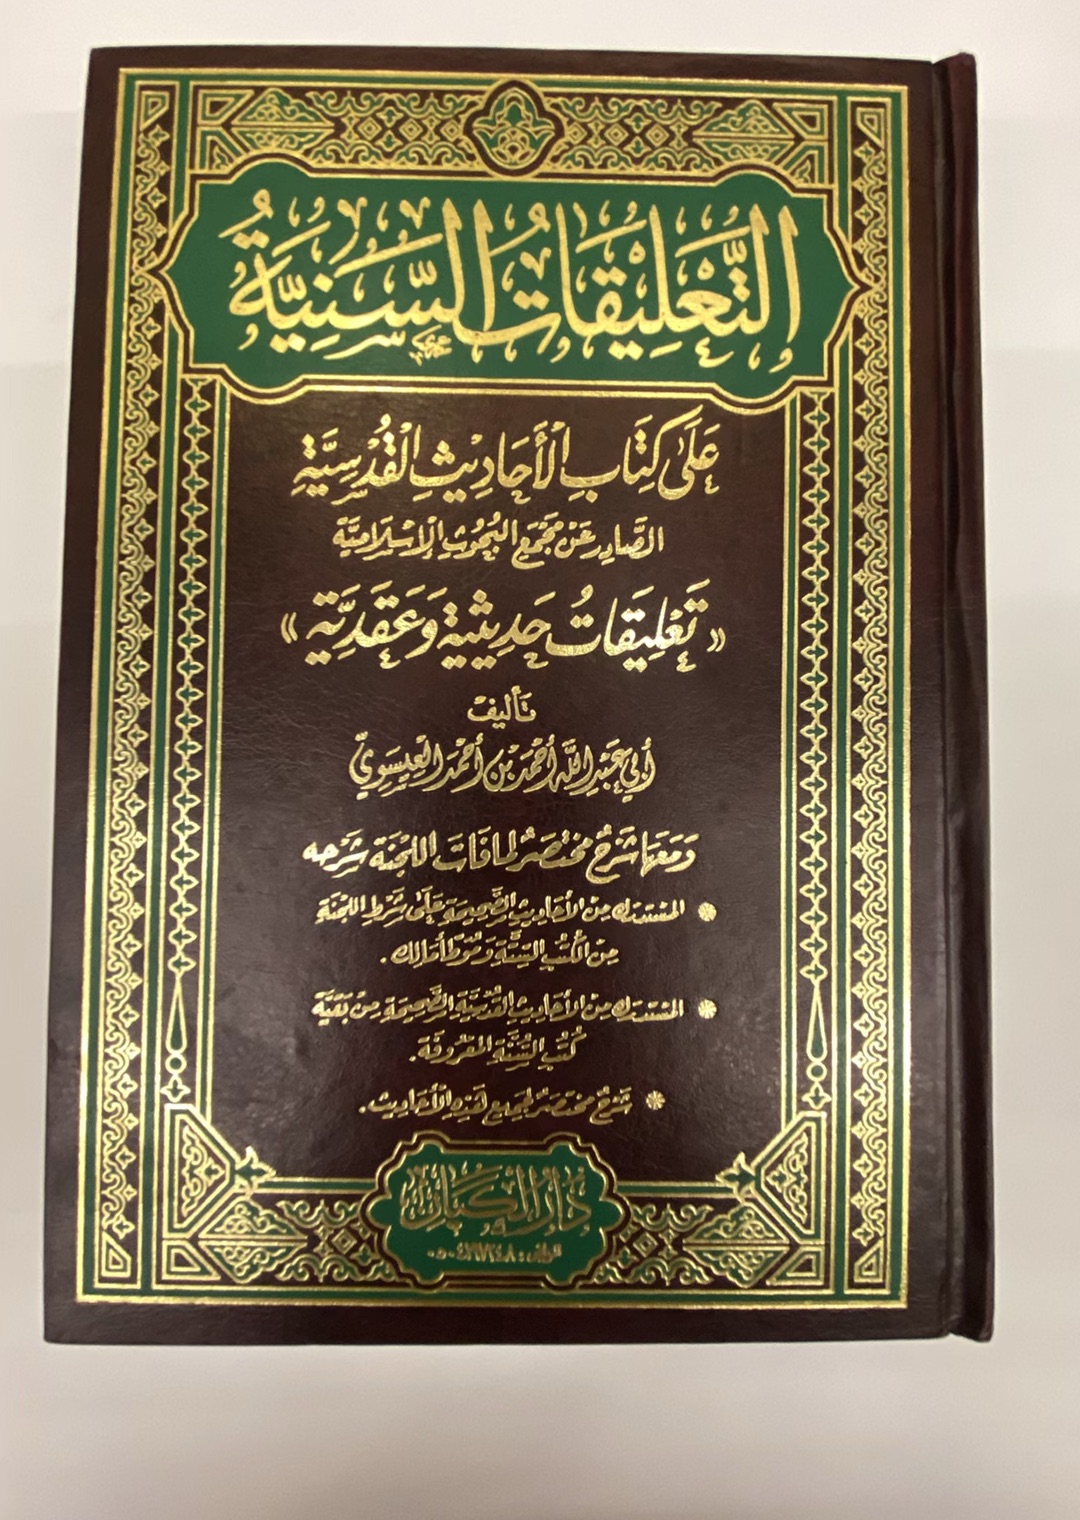 التَّعْلِيقَاتُ السَّنِيَّةُ
عَلَى كِتَابِ الْأَحَادِيْثِ الْقُدْسِيَّةِ
الصَّادِرِ عَنْ مَجْمَعِ البُحُوثِ الإِسْلَامِيَّةِ
« تَعْلِيقَاتٌ حَدِيثِيَّةٌ وَعَقَدِيَّةٌ »
تَأليف
أَبِي عَبْدِ اللَّهِ أَحْمَدَ بْنِ أَحْمَدَ الْعِيسَوِيِّ
وَمَعَهَا شَرْحٌ مُخْتَصَرٌ لِمَا فَاتَ اللَّجْنَةَ شَرْحُه
* المُسْتَدْرَك مِنَ الأَحَادِيثِ الصَّحِيحَةِ عَلَى شَرْطِ اللَّجْنَةِ
مِنَ الكُتُبِ السِّتَّةِ وَمُوَطَّأ مَالِك .
* المُسْتَدْرَك مِنَ الأَحَادِيثِ القُدْسِيَّةِ الصَّحِيحَةِ مِنْ بَقِيَّةِ
كُتُبِ السُّنَّةِ المَعْرُوفَةِ .
* شَرْحٌ مُخْتَصَرٌ لِجَمِيعِ هَذِهِ الأَحَادِيث .
دَارُ الكَيَان